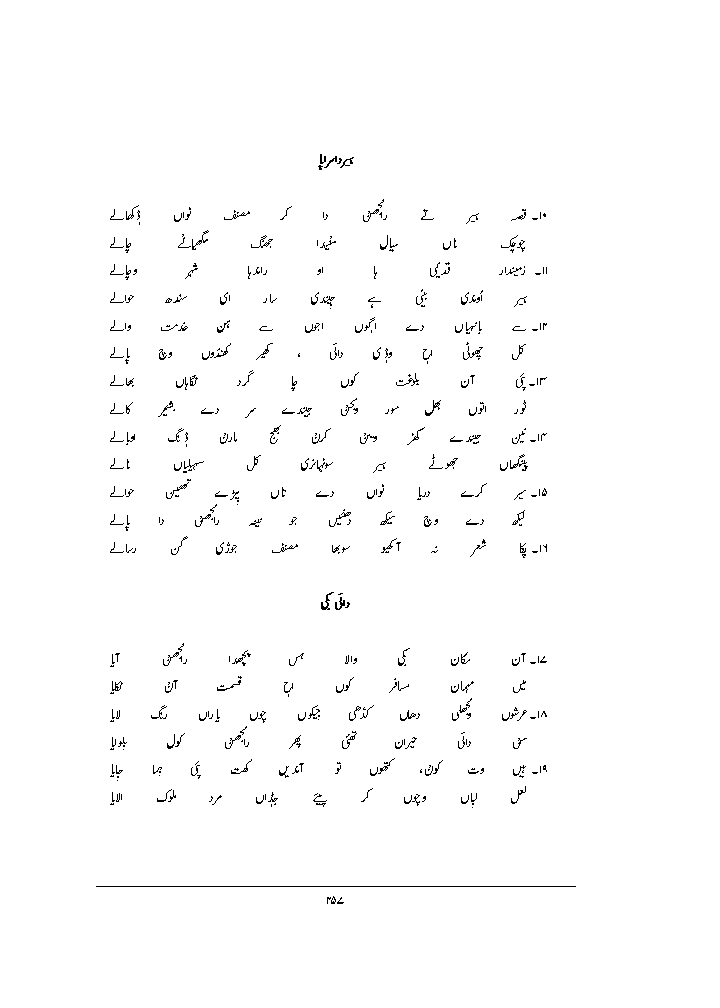 ہیر دا سراپا
۱۰۔ قصہ ہیر تے رانجھݨ دا کر مصنف نواں ݙکھالے
چوچک ناں سیال سݨیندا جھنگ مگھیاݨے چالے
۱۱۔ زمیندار قدیمی ہا او راندہا شہر وچالے
ہیر اوندی بیٹی ہے جیندی سار ای سندھ حوالے
۱۲۔ سے بانہیاں دے اڳوں اجوں سے ہن خدمت والے
کل چھوٹی اح وݙی دائی ، کھیر کھنڈوں وچ پالے
۱۳۔ پئی آن بلوغت کوں جا گرد نگاہاں بھالے
ٹور اتوں بھل مور ویکھݨ جیندے سر دے بشیر کالے
۱۴۔ نین جیندے کھڑ ویہݨ کرن بھج مارن ݙنگ اوبالے
پینگھاں جھوٹے ہیر سونہاݨی کل سہیلیاں نالے
۱۵۔ سیر کرے دریا نواں دے ناں ٻیڑے تھیݨ حوالے
لیکھ دے وچ سیکھ ڈھٹیں جو نیہہ رانجھݨ دا پالے
۱۶۔ پکا شعر نہ آکھیو سوبھا مصنف جوڑی گن رسالے
دائی بکی
۱۷۔ آن مکان بکی والا ہس پچھدا رانجھݨ آیا
میں مہمان مسافر کوں اح قسمت آݨ ٹکایا
۱۸۔ عرشوں ونجھلی دھاں کڈھی جیکوں چوں یاراں رنگ لایا
سݨ دائی حیران تھئی پھر رانجھݨ کول بلوایا
۱۹۔ ہیں وت کوݨ، کتھوں تو آندیں کھت پئی ہما جایا
لعل لباں وچوں کر پیئے چݙاں مرد ملوک الایا
۲۵۷